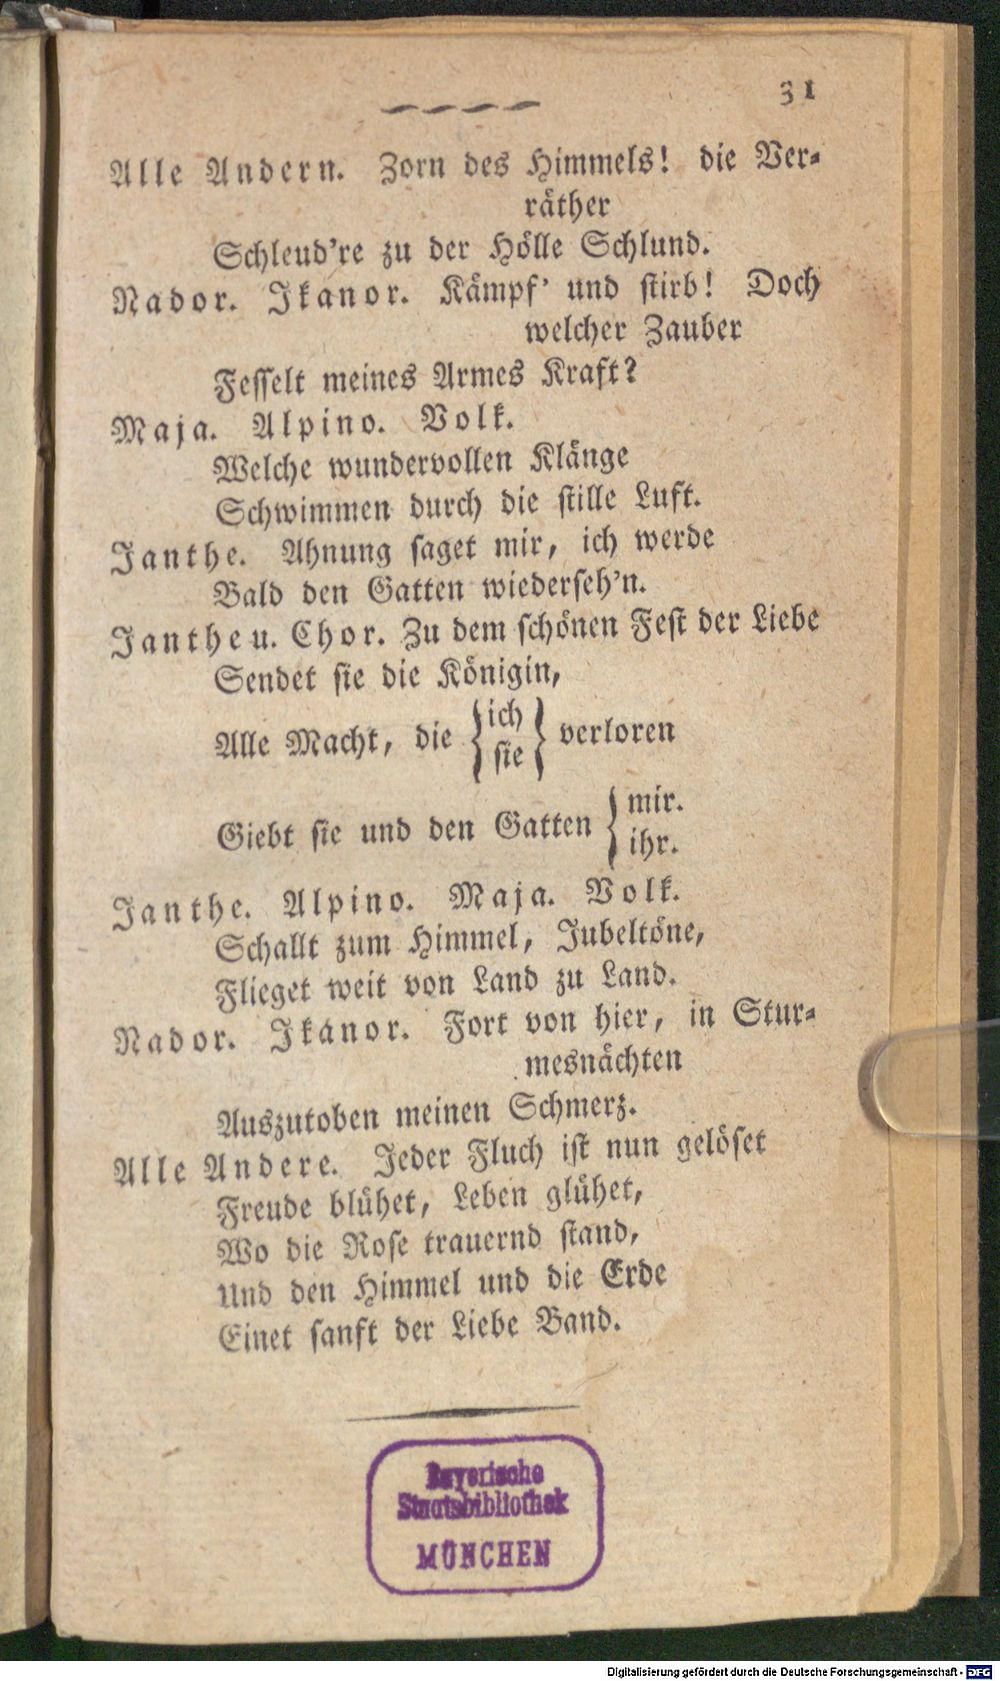 31
Alle Andern. Zorn des Himmels! die Ver-
räther
Schleud're zu der Hölle Schlund.
Nador. Ikanor. Kämpf' und stirb! Doch
welcher Zauber
Fesselt meines Armes Kraft?
Maja. Alpino. Volk.
Welche wundervollen Klänge
Schwimmen durch die stille Luft.
Janthe. Ahnung saget mir, ich werde
Bald den Gatten wiederseh'n.
Janthe u. Chor. Zu dem schönen Fest der Liebe
Sendet sie die Königin,
Alle Macht, die { ich sie } verloren
Giebt sie und den Gatten { mir. ihr.
Janthe. Alpino. Maja. Volk.
Schallt zum Himmel, Jubeltöne,
Flieget weit von Land zu Land.
Nador. Ikanor. Fort von hier, in Stur-
mesnächten
Auszutoben meinen Schmerz.
Alle Andere. Jeder Fluch ist nun gelöset
Freude blühet, Leben glühet,
Wo die Rose trauernd stand,
Und den Himmel und die Erde
Einet sanft der Liebe Band.
Bayerische
Staatsbibliothek
MÜNCHEN
Digitalisierung gefördert durch die Deutsche Forschungsgemeinschaft - DFG